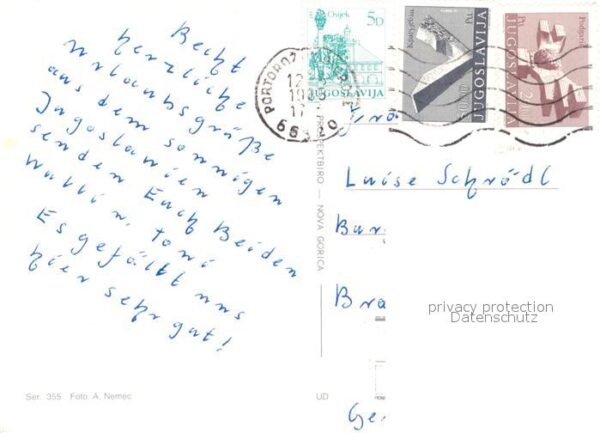 Recht
herzliche
Urlaubsgrüße
aus dem sonnigen
Jugoslawien
senden Euch Beiden
Walli u. Toni
Es gefällt uns
hier sehr gut!
Osijek
5D
JUGOSLAVIJA
Ptt
JUGOSLAVIJA
Podgarić
Ptt
JUGOSLAVIJA
PORTOROŽ
66320
PROJEKTBIRO — NOVA GORICA
Luise Schrödl
privacy protection
Datenschutz
Ser. 355 Foto A. Nemec
UD